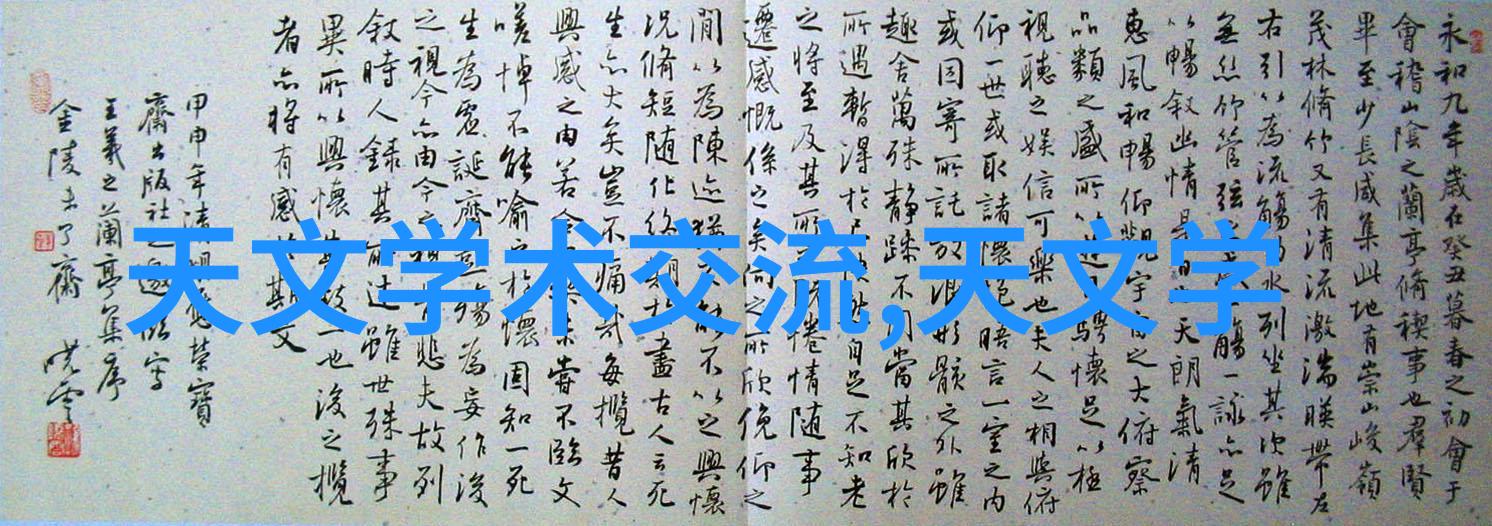 天文学术交流,天文学
永和九年歲在癸丑暮春之初會于
會稽山陰之蘭亭脩稧事也群賢
畢至少長咸集此地有崇山峻嶺
茂林脩竹又有清流激湍暎帶左
右引以為流觴曲水列坐其次雖
無絲竹管弦之盛一觴一詠亦足
以暢敘幽情是日也天朗氣清
惠風和暢仰觀宇宙之大俯察
品類之盛所以遊目騁懷足以極
視聽之娛信可樂也夫人之相與俯
仰一世或取諸懷抱晤言一室之內
或因寄所託放浪形骸之外雖
趣舍萬殊靜躁不同當其欣於
所遇暫得於己快然自足不知老
之將至及其所之既惓情隨事
遷感慨係之矣向之所欣俛仰之
間以為陳迹猶不能不以之興懷
況脩短隨化終期於盡古人云死
生亦大矣豈不痛哉每攬昔人
興感之由若合一契未嘗不臨文
嗟悼不能喻之於懷固知一死
生為虛誕齊彭殤為妄作後
之視今亦由今之視昔悲夫故列
敘時人錄其所述雖世殊事
異所以興懷其致一也後之攬
者亦將有感於斯文
甲申年清明榮寶
齋出版社之邀寫
王羲之蘭亭集序
金陵未了齋